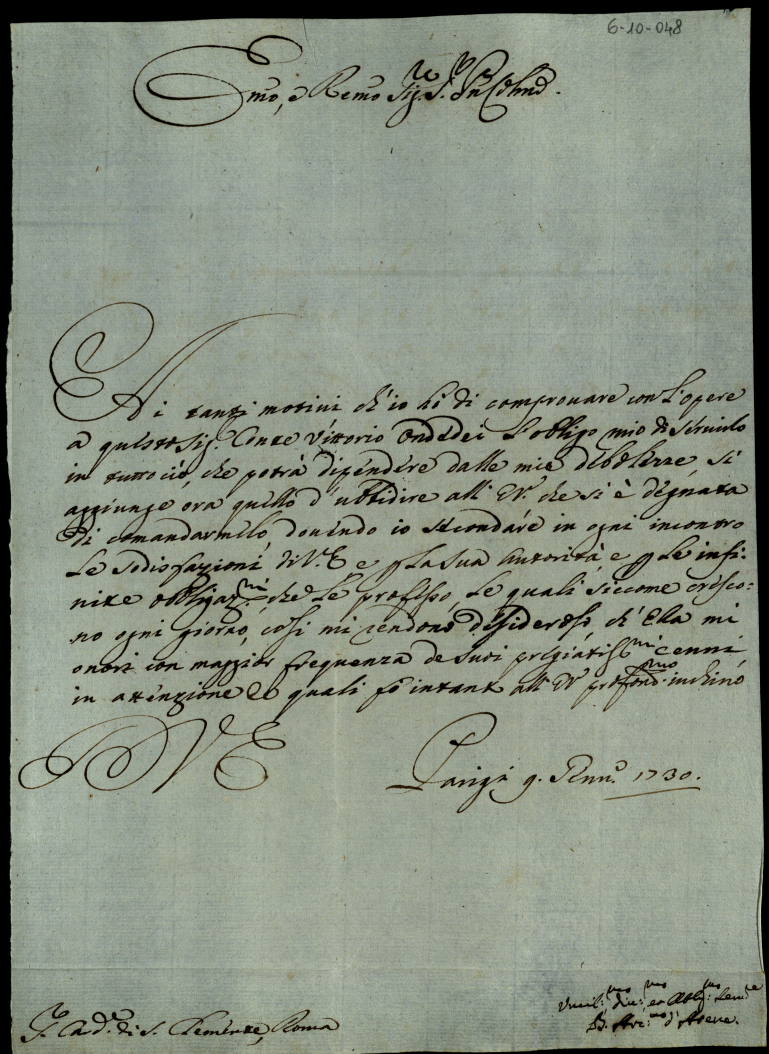 6-10-048
Emo, e Remo Sig.re S.r Pñe Colmo.
Ai tanti motivi ch'io hò di comprouare con l'opere
a questo Sig.r Conte Vittorio Ondedei l'obligo mio di seruirlo
in tutto ciò, che potrà dipendere dalle mie debolezze, si
aggiunge ora quello d'ubbidire all' E.V. che si è degnata
di comandarmelo, douendo io secondare in ogni incontro
le sodisfazioni di V.E. e p la sua autorità, e p le infi-
nite obbligaz.ni che le professo, le quali siccome cresco-
no ogni giorno, così mi rendono desideroso, ch'Ella mi
onori con maggior frequenza de suoi pregiatiss.mi cenni
in attenzione de quali fò intant all' E.V. profond.mo inchino
D V E
Parigi 9. Genn.o 1730.
S.r Ca.d. di S. Clemente, Roma
Vmil.mo diu.mo et obbl.mo Seru.re
B. Arc.uo d'Atene.